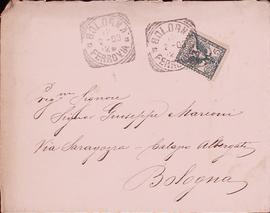 BOLOGNA
FERROVIA
BOLOGNA
FERROVIA
Preg.mo Signore
Signor Giuseppe Marconi
Via Saragozza -
Bologna